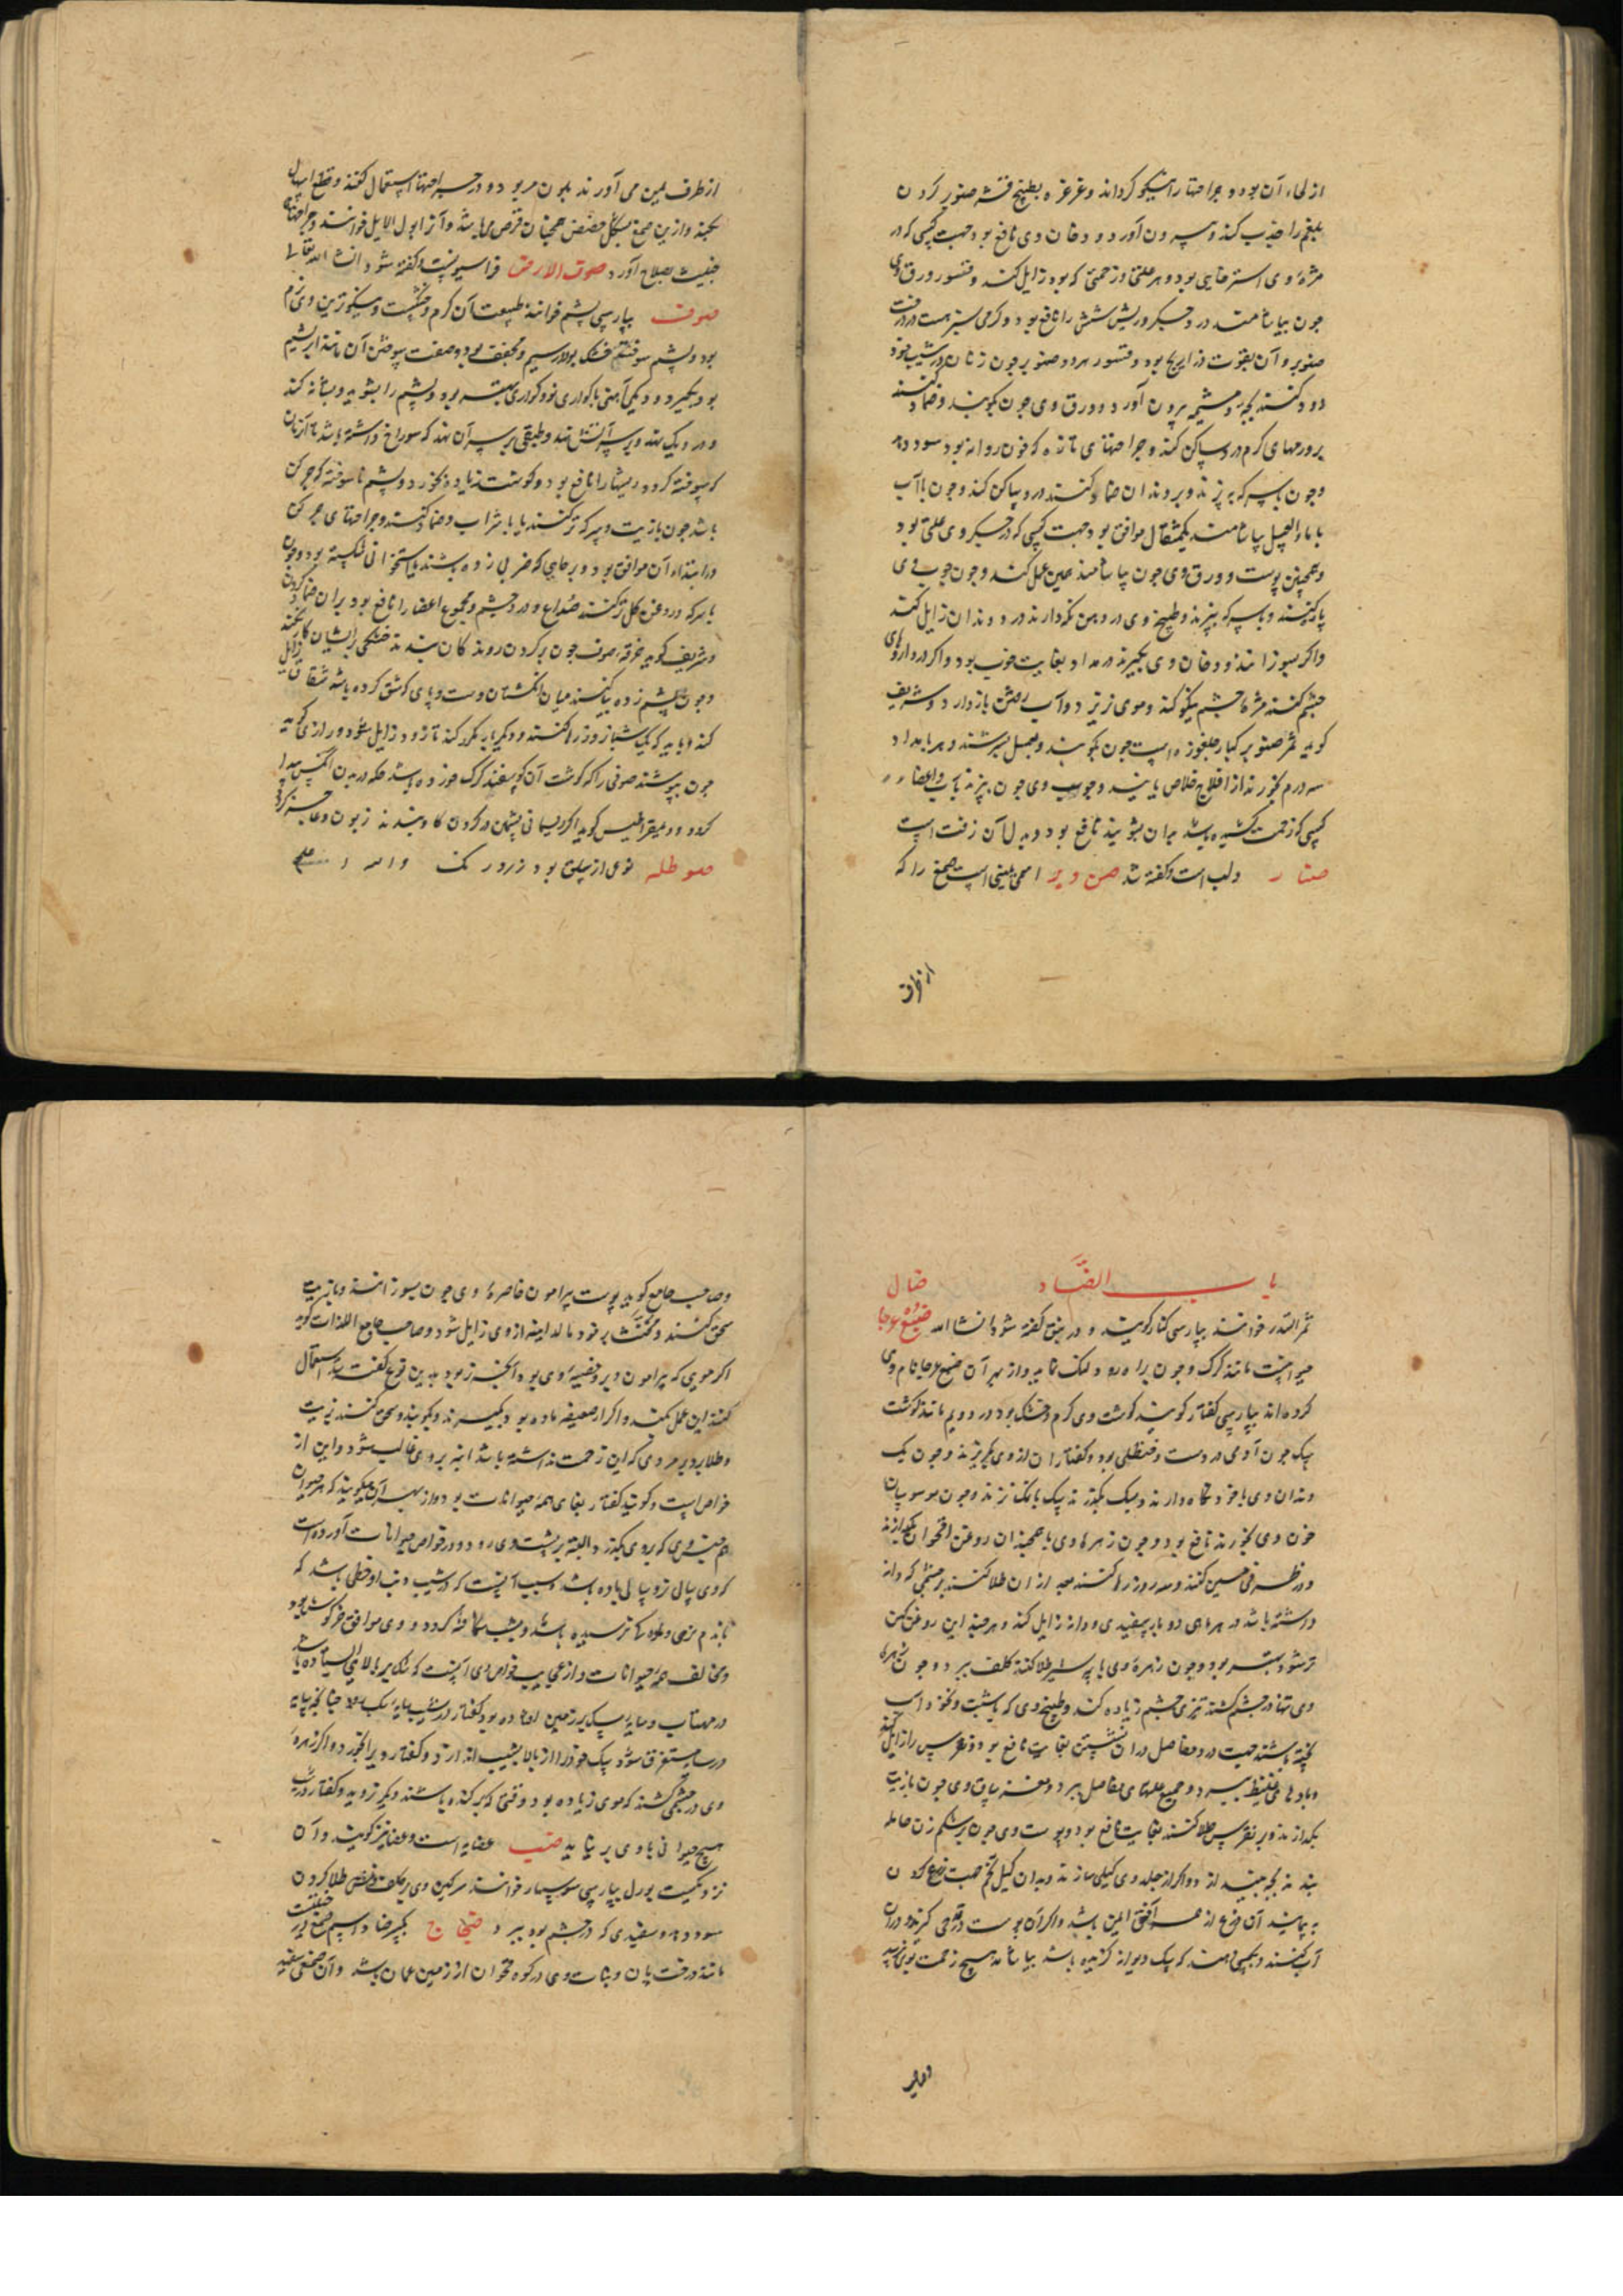 از لحاء آن بود و جراحتها را نیکو گرداند و غرغره بطبیخ قشر صنوبر کردن
بلغم را جذب کند و بیرون آورد و دخان وی نافع بود جهت کسی که در
مژهٔ وی استرخایی بود و هر علتی و زحمتی که بود زایل کند و قشور ورق وی
چون بیاشامند درد جگر و ریش شش را نافع بود و کرمی سبز هست در درخت
صنوبر و آن بقوت ذراریح بود و قشور صنوبر چون زنان در شیب خود
دود کنند بچه و مشیمه بیرون آورد و ورق وی چون بکوبند و ضماد کنند
بر ورمهای گرم درد ساکن کند و جراحتهای تازه که خون روانه بود سود دهد
و چون با سرکه بپزند و بر دندان ضماد کنند درد ساکن کند و چون با آب
یا ماء العسل بیاشامند یکمثقال موافق بود جهت کسی که در جگر وی علتی بود
و همچنین پوست و ورق وی چون بیاشامند همین عمل کند و چون چوب وی
پاره کنند و با سرکه بپزند و طبیخ وی در دهن نگه دارند درد دندان زایل کند
و اگر بسوزانند و دخان وی بگیرند در مداد بغایت خوب بود و اگر در داروهای
چشم کنند مژهٔ چشم نیکو کند و موی بریزد و آب رفتن باز دارد و شریف
گوید ثمر صنوبر کبار چلغوزه است چون بکوبند و بعسل بسرشند و هر بامداد
سه درم بخورند از افلاج خلاص یابند و چوب وی چون بپزند بآب و اعضاء
کسی که زحمت کشیده باشد بدان بشویند نافع بود و بدل آن زفت است
صنار دلب است و گفته شد صن وبر اسمی یمنی است صمغ را که
از طرف
از طرف یمن می آورند بلون مر بود و در جبر جراحتها استعمال کنند و قطع اسهال
بکند و ازین صمغ بشکل حضض همچنان قرص می باشد و آنرا بول الابل خوانند و جراحتهای
خبیث بصلاح آورد صوت الارض فراسیونست و گفته شود انشاء الله تعالی
صوف بپارسی پشم خوانند طبیعت آن گرم و خشکست و نیکوترین وی نرم
بود و پشم سوخته خشک بود و مجفف بود و صفت سوختن آن مانند ابریشم
بود بگیرد دیگی آهنی یا گواری نو و گواری بهتر بود و پشم را بشوید و شانه کند
و در دیگ نهد و بر سر آتش نهد و طبقی بر سر آن نهد که سوراخ داشته باشد تا آن زمان
که سوخته گردد ریشها را نافع بود و گوشت زیاده بخورد و پشم ناسوخته که چرکن
باشد چون با زیت و سرکه تر کنند یا با شراب و ضماد کنند بر جراحتهای چرکن
در ابتداء آن موافق بود و بر جایی که ضربی زده باشند یا استخوانی شکسته بود و چون
با سرکه و روغن گل تر کنند صداع و درد چشم و مجموع اعضا را نافع بود بدان ضماد کردن
و شریف گوید خرقهٔ صوف چون بر گردن رونده گان بندند خستگی ایشان کار نکند
و چون پشم زده بنهند میان انگشتان دست و پای که شق کرده باشد شقاق زایل
کند و باید که یک شبانروز رها کنند و دیگر بار مکرر کند تا زود زایل شود و رازی گوید
چون بپوشند صوفی را که گوشت آن گوسفند گرگ خورده باشد حکه در بدن آنکس پیدا
گردد و دیمقراطیس گوید اگر ریسمانی پشمین در گردن گاو بندند زبون و عاجز گردد
صوطله نوعی از سلق بود زرد رنگ والله اعلم
باب الضاد ضال
ثمر السدر خوانند بپارسی کنار گویند و در نبق گفته شود انشاء الله ضبع عرجا
حیوانیست مانند گرگ و چون براه رود لنگ نماید و از بهر آن ضبع عرجا نام وی
کرده اند بپارسی کفتار گویند گوشت وی گرم و خشک بود در دوم مانند گوشت
سگ چون آدمی در دست حنظلی بود کفتاران از وی بگریزند و چون یک
دندان وی با خود نگاه دارند و بسگ بگذرند سگ بانگ نزند و چون موسوسان
خون وی بخورند نافع بود و چون زهرهٔ وی با همچندان روغن اقحوان بگدازند
و در ظرفی مسین کنند و سه روز رها کنند بعد از آن طلا کنند بر چشمی که دانه
داشته باشد در هر ماهی دو بار سفیدی و دانه زایل کند و هر چند این روغن کهن
تر شود بهتر بود و چون زهرهٔ وی با پیه شیر طلا کنند کلف ببرد و چون زهرهٔ
وی تنها در چشم کشند تیزی چشم زیاده کند و طبیخ وی که با شبت و نخود آب
پخته باشند جهت درد مفاصل در آن نشستن بغایت نافع بود و نقرس را زایل کند
و بادهای غلیظ ببرد و جمیع علتهای مفاصل ببرد و مغز ساق وی چون با زیت
بگدازند و بر نقرس طلا کنند بغایت نافع بود و پوست وی چون بر شکم زن حامله
بندند بچه نیندازد و اگر از جلد وی کیلی سازند و بدان کیل تخم جهت زرع کردن
بپیمایند آن زرع از همه آفتی ایمن باشد و اگر آن پوست در قدحی گیرند و در آن
آب کنند و بکسی دهند که سگ دیوانه گزیده باشد بیاشامد هیچ زحمت بوی نرسد
و صاحب
و صاحب جامع گوید پوست پیرامون خاصرهٔ وی چون بسوزانند و با زیت
سحق کنند و مخنث بر خود مالد ابنه از وی زایل شود و صاحب جامع اللذات گوید
اگر مویی که پیرامون دبر و خصیهٔ وی بود آنچه نر بود بدین نوع که گفته شد استعمال
کنند این عمل بکند و اگر از ضبع ماده بود بگیرند و بکوبند و سحق کنند بزیت
و طلا بر دبر مردی که این زحمت نداشته باشد ابنه بر وی غالب شود و این از
خواص است و گویند کفتار بغای همه حیوانات بود و از بهر آن میگویند که هر حیوان
که بر وی بگذرد البته بر پشت وی رود و در خواص حیوانات آورده است
که وی سالی نر و سالی ماده باشد
و مخالف همه حیوانات و از عجایب خواص وی آنست که سگ بر بالایی ایستاده باشد
در مهتاب و سایهٔ سگ بر زمین افتاده بود کفتار در شیب سایه سگ رود چنانکه سایه
در سایه مستغرق شود سگ خود را از بالا بشیب اندازد و کفتار ویرا بخورد و اگر زهرهٔ
وی در چشمی کشند که موی زیاده بود و وقتی که بر کنده باشند دیگر نروید
هیچ حیوانی با وی بر نیاید ضب عضایه است و عضا نیز گویند و آن
نزدیکست بورل بپارسی سوسمار خوانند سرگین وی بر کلف و نمش طلا کردن
سود دهد و سفیدی که در چشم بود ببرد ضجاج بکسر ضاد اسم صمغ
مانند درخت بان و نبات وی در کوه قهوان از زمین عمان باشد و آن صمغی سفید